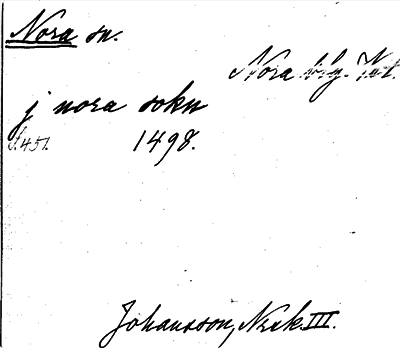 Nora sn.
Nora
j nora sokn
S. 451. 1498.
Johansson, Norsk III.